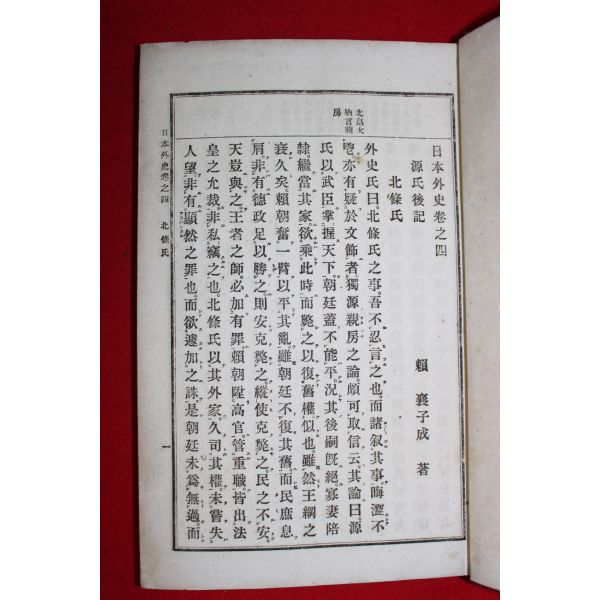 日本外史卷之四
源氏後記
賴襄子成著
北條氏
北畠大
納言親
房
外史氏曰。北條氏之事。吾不忍言之也。而諸叙其事。晦澀不
亦有疑於文飾者。獨源親房之論。頗可取信云。其論曰。源
氏以武臣掌握天下。朝廷蓋不能平。況其後嗣旣絕。寡妻陪
隷繼當其家。欲乘此時而斃之。以復舊權似也。雖然王綱之
衰久矣。賴朝奮一臂以平其亂。雖朝廷不復其舊。而民庶息
肩。非有德政足以勝之。則安克斃之。縱使克斃之。民之不安。
天豈與之。王者之師。必加有罪。賴朝陞高官。管重職。皆出法
皇之允裁。非私竊之也。北條氏以其外家。久司其權。未嘗失
人望。非有顯然之罪也。而欲遽加之誅。是朝廷未爲無過。而
日本外史卷之四 北條氏
一